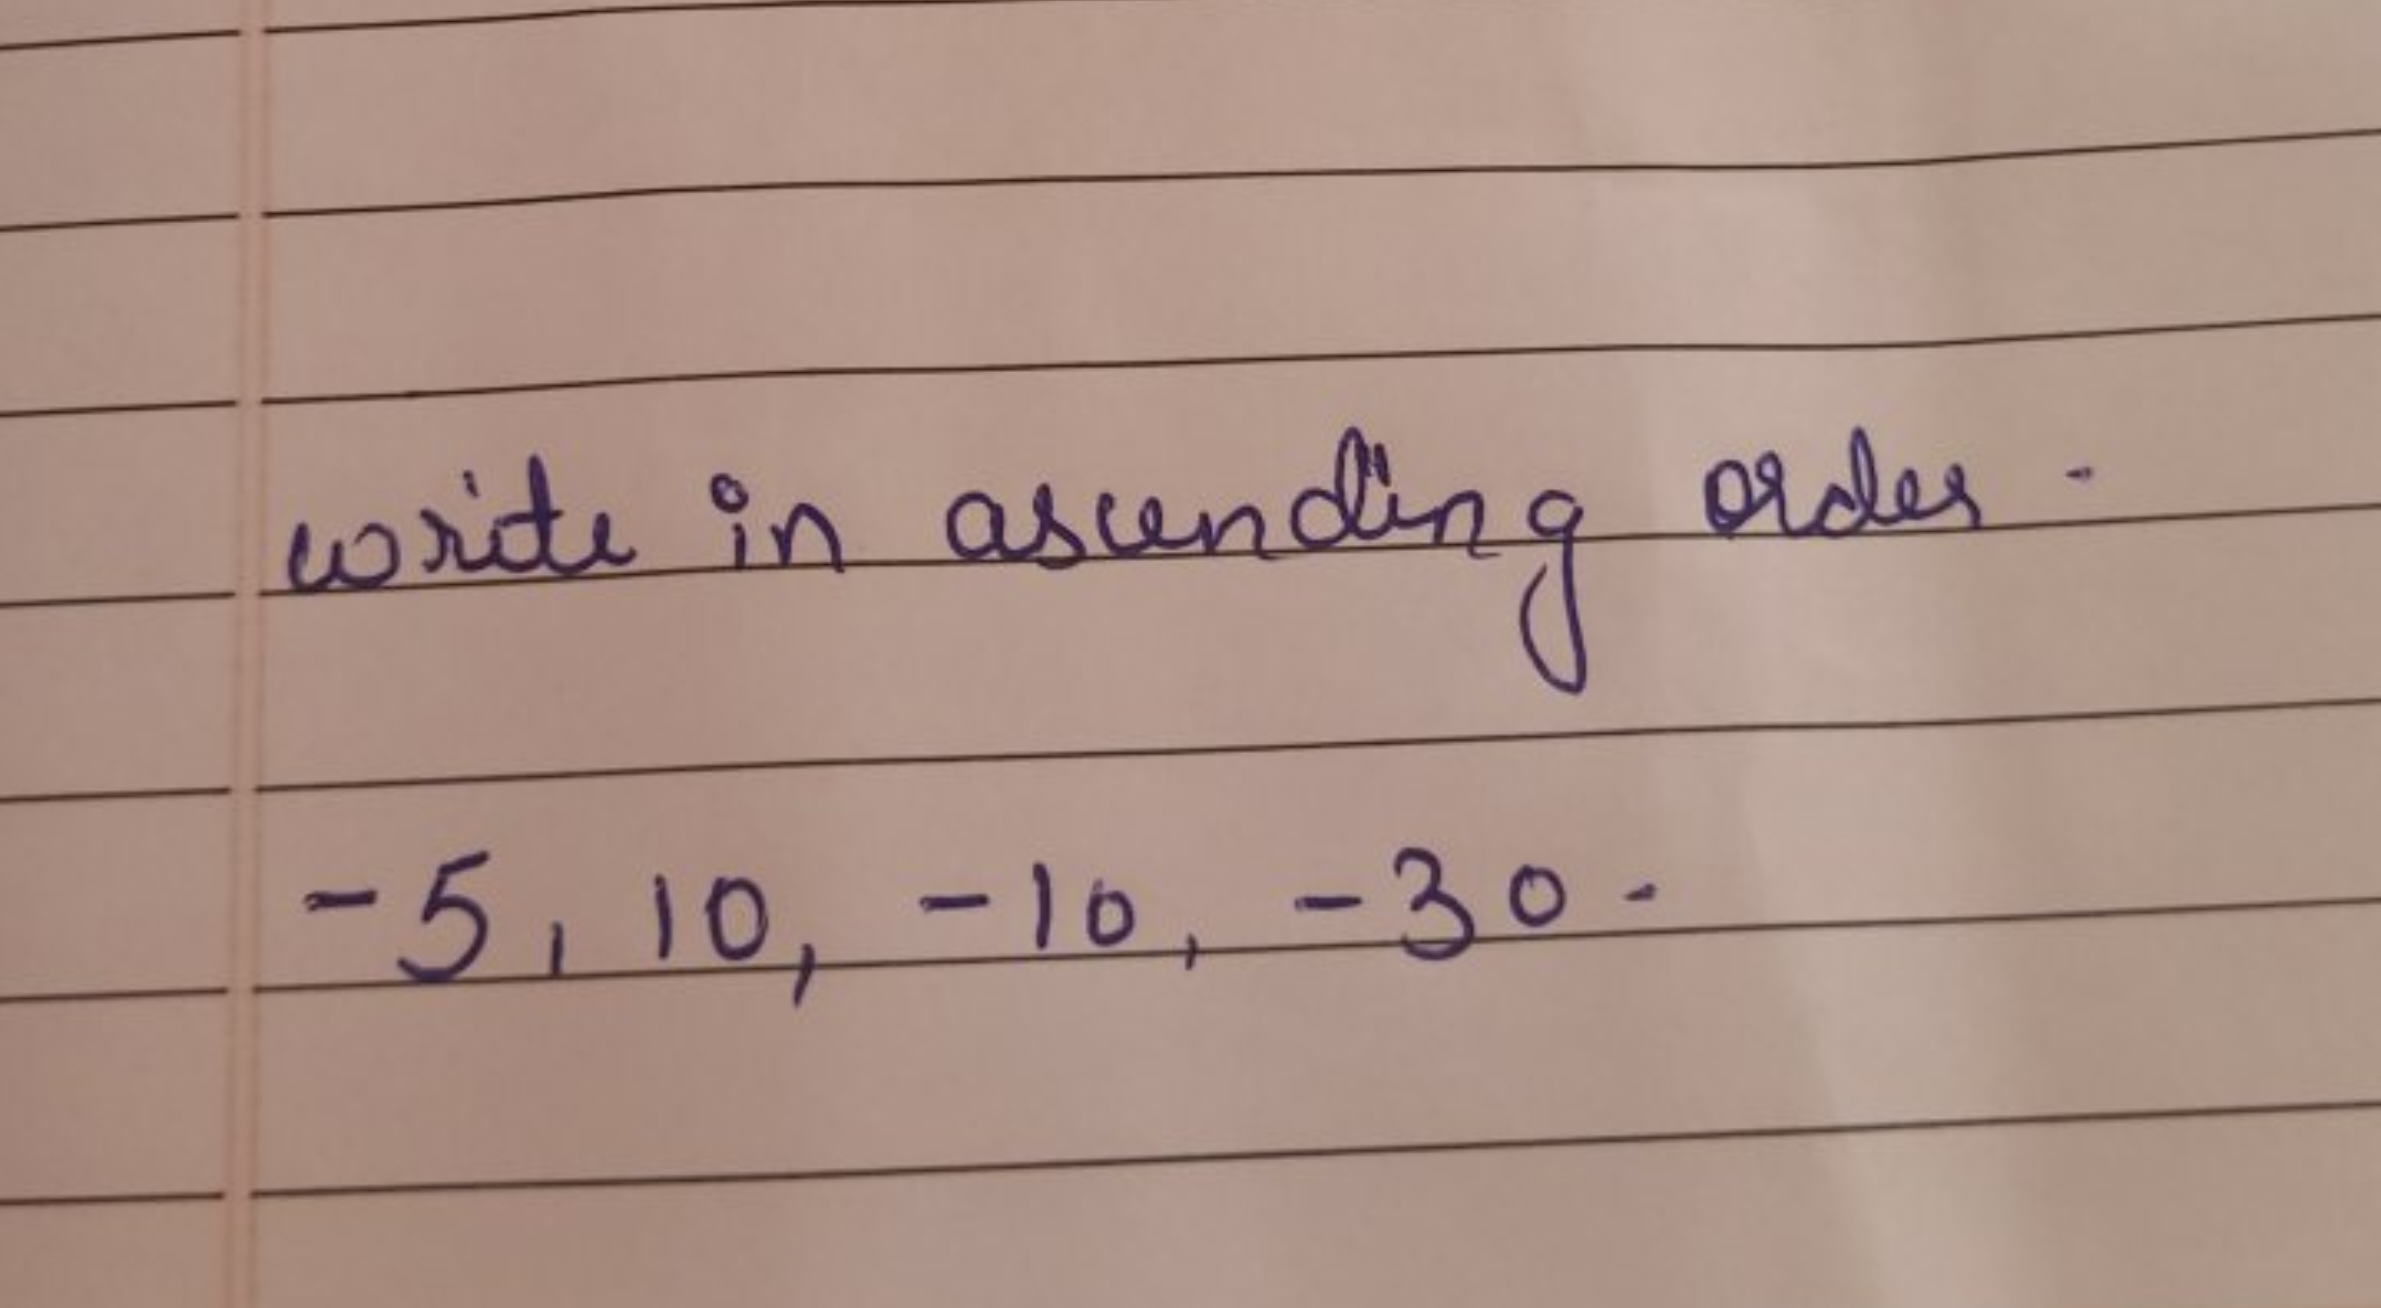 write in ascending order.
-5, 10, -10, -30.